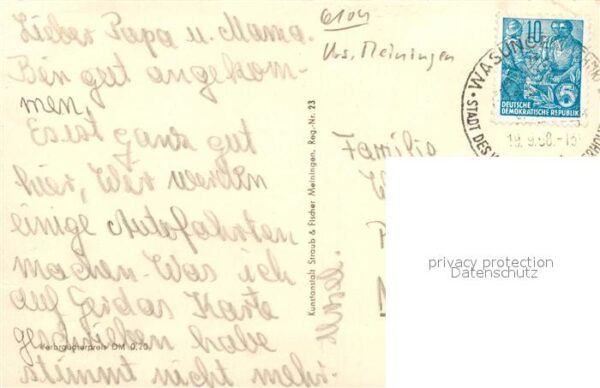 Lieber Papa u. Mama.
Bin gut angekom-
men,
Es ist ganz gut
hier, Wir werden
einige Autofahrten
machen. Was ich
auf Gerdas Karte
geschrieben habe
stimmt nicht mehr.
Verbraucherpreis DM 0,20
Kunstanstalt Straub & Fischer Meiningen, Reg.-Nr. 23
6104
Krs. Meiningen
Familie
10
DEUTSCHE
DEMOKRATISCHE REPUBLIK
5
WASUNG
STADT DES
19.9.58.-15
privacy protection
Datenschutz